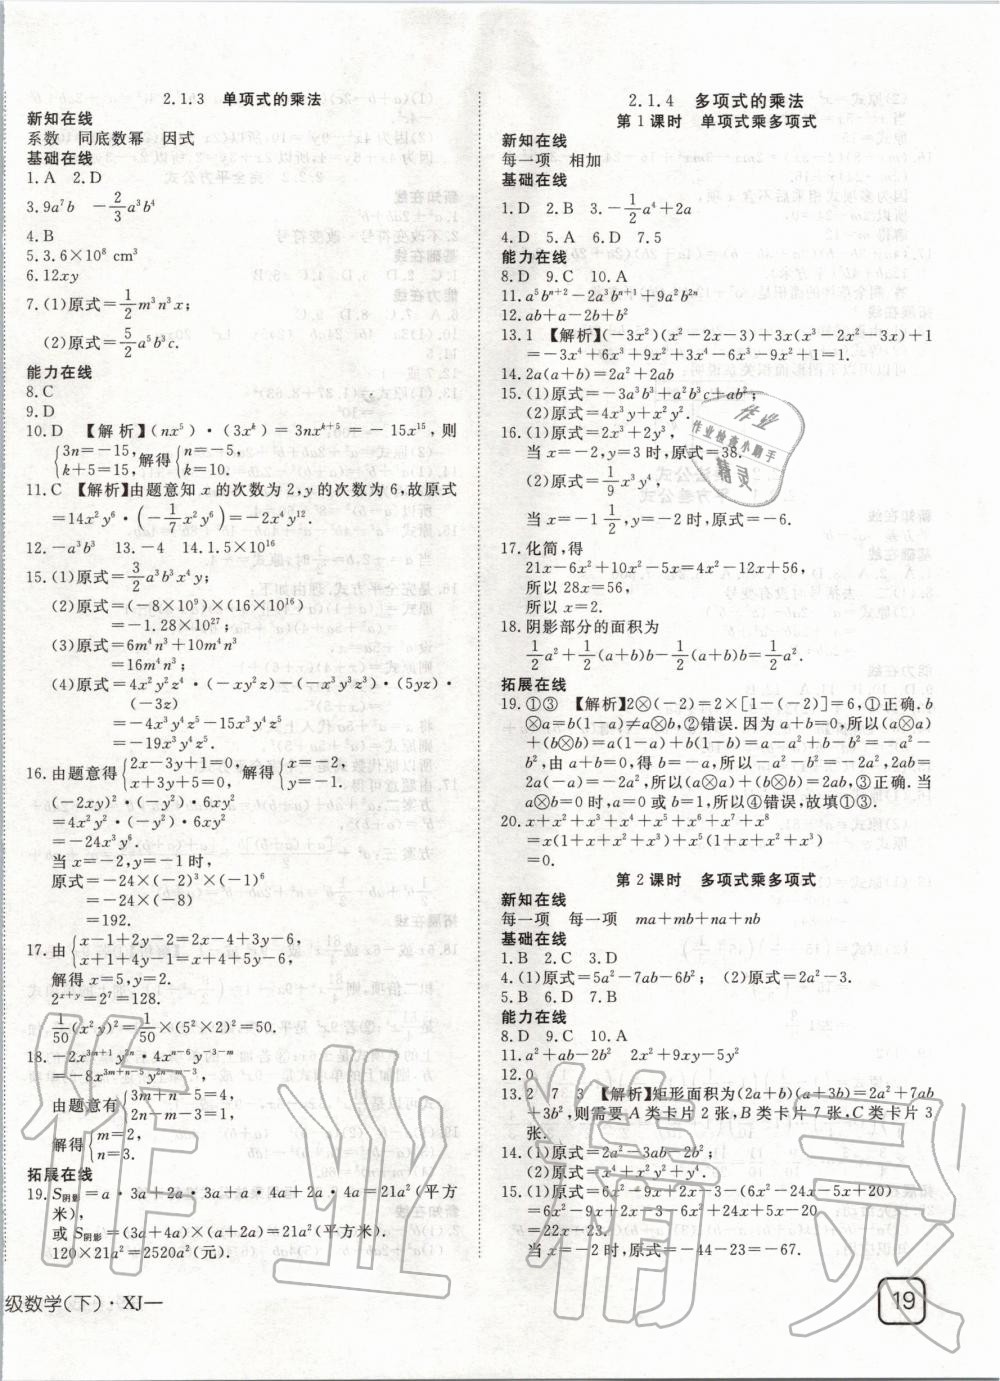 2.1.3 单项式的乘法
新知在线
系数 同底数幂 因式
基础在线
1. A 2. D
3. 9a⁷b -2/3a³b⁴
4. B
5. 3.6×10⁸ cm³
6. 12xy
7. (1)原式=1/2m³n³x;
(2)原式=5/2a⁵b³c.
能力在线
8. C
9. D
10. D 【解析】(nx⁵)·(3xᵏ)=3nxᵏ⁺⁵=-15x¹⁵,则
{3n=-15, k+5=15, 解得{n=-5, k=10.
11. C 【解析】由题意知x的次数为2,y的次数为6,故原式
=14x²y⁶·(-1/7x²y⁶)=-2x⁴y¹².
12. -a³b³ 13. -4 14. 1.5×10¹⁶
15. (1)原式=3/2a³b³x⁴y;
(2)原式=(-8×10⁹)×(16×10¹⁶)
=-1.28×10²⁷;
(3)原式=6m⁴n³+10m⁴n³
=16m⁴n³;
(4)原式=4x²y²z⁴·(-xy²z)-(-x³y³z³)·(5yz)·
(-3z)
=-4x³y⁴z⁵-15x³y⁴z⁵
=-19x³y⁴z⁵.
16. 由题意得{2x-3y+1=0, x+3y+5=0, 解得{x=-2, y=-1.
(-2xy)²·(-y²)·6xy²
=4x²y²·(-y²)·6xy²
=-24x³y⁶.
当x=-2,y=-1时,
原式=-24×(-2)³×(-1)⁶
=-24×(-8)
=192.
17. 由{x-1+2y-2=2x-4+3y-6, x+1+4y-1=x+4+2y-6,
解得x=5,y=2.
2ˣ⁺ʸ=2⁷=128.
1/50(x²y)²=1/50×(5²×2)²=50.
18. -2x³ᵐ⁺¹y²ⁿ·4xⁿ⁻⁶y⁻³⁻ᵐ
=-8x³ᵐ⁺ⁿ⁻⁵y²ⁿ⁻³⁻ᵐ,
由题意有{3m+n-5=4, 2n-m-3=1,
解得{m=2, n=3.
拓展在线
19. S阴影=a·3a+2a·3a+a·4a+2a·4a=21a²(平方
米),
或S阴影=(3a+4a)×(a+2a)=21a²(平方米).
120×21a²=2520a²(元).
级数学(下)·XJ—
2.1.4 多项式的乘法
第1课时 单项式乘多项式
新知在线
每一项 相加
基础在线
1. D 2. B 3. -1/2a⁴+2a
4. D 5. A 6. D 7. 5
能力在线
8. D 9. C 10. A
11. a⁵bⁿ⁺²-2a³bⁿ⁺¹+9a²b²ⁿ
12. ab+a-2b+b²
13. 1 【解析】(-3x²)(x²-2x-3)+3x(x³-2x²-3x)+1
=-3x⁴+6x³+9x²+3x⁴-6x³-9x²+1=1.
14. 2a(a+b)=2a²+2ab
15. (1)原式=-3a³b³+a²b³c+ab²;
(2)原式=4x³y+x²y².
16. (1)原式=2x³+2y³,
当x=-2,y=3时,原式=38.
(2)原式=1/9x³y⁴,
当x=-1 1/2,y=-2时,原式=-6.
17. 化简,得
21x-6x²+10x²-5x=4x²-12x+56,
所以28x=56,
所以x=2.
18. 阴影部分的面积为
1/2a²+1/2(a+b)b-1/2(a+b)b=1/2a².
拓展在线
19. ①③ 【解析】2⊗(-2)=2×[1-(-2)]=6,①正确. b
⊗a=b(1-a)≠a⊗b,②错误. 因为a+b=0,所以(a⊗a)
+(b⊗b)=a(1-a)+b(1-b)=a-a²+b-b²=-a²-
b²,由a+b=0,得b=-a,所以-a²-b²=-2a²,2ab=
2a(-a)=-2a²,所以(a⊗a)+(b⊗b)=2ab,③正确. 当
a⊗b=0时,a=0或b=1,所以④错误,故填①③.
20. x+x²+x³+x⁴+x⁵+x⁶+x⁷+x⁸
=x(1+x+x²+x³)+x⁵(1+x+x²+x³)
=0.
第2课时 多项式乘多项式
新知在线
每一项 每一项 ma+mb+na+nb
基础在线
1. B 2. C 3. D
4. (1)原式=5a²-7ab-6b²; (2)原式=2a²-3.
5. B 6. D 7. B
能力在线
8. D 9. C 10. A
11. a²+ab-2b² 2x²+9xy-5y²
12. 0
13. 2 7 3 【解析】矩形面积为(2a+b)(a+3b)=2a²+7ab
+3b²,则需要A类卡片2张,B类卡片7张,C类卡片3
张.
14. (1)原式=2a²-3ab-2b²;
(2)原式=x⁴+x²y²+y⁴.
15. (1)原式=6x²-9x+2x-3-(6x²-24x-5x+20)
=6x²-9x+2x-3-6x²+24x+5x-20
=22x-23.
当x=-2时,原式=-44-23=-67.
19
作业
作业检查小助手
精灵
作业精灵